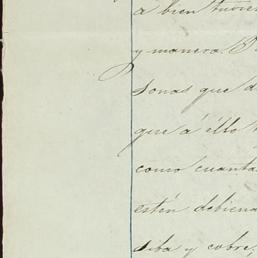 a bien tuvier
y manera. P
sonas que d
que á ello
como cuanta
estén debiend
siba y cobre,